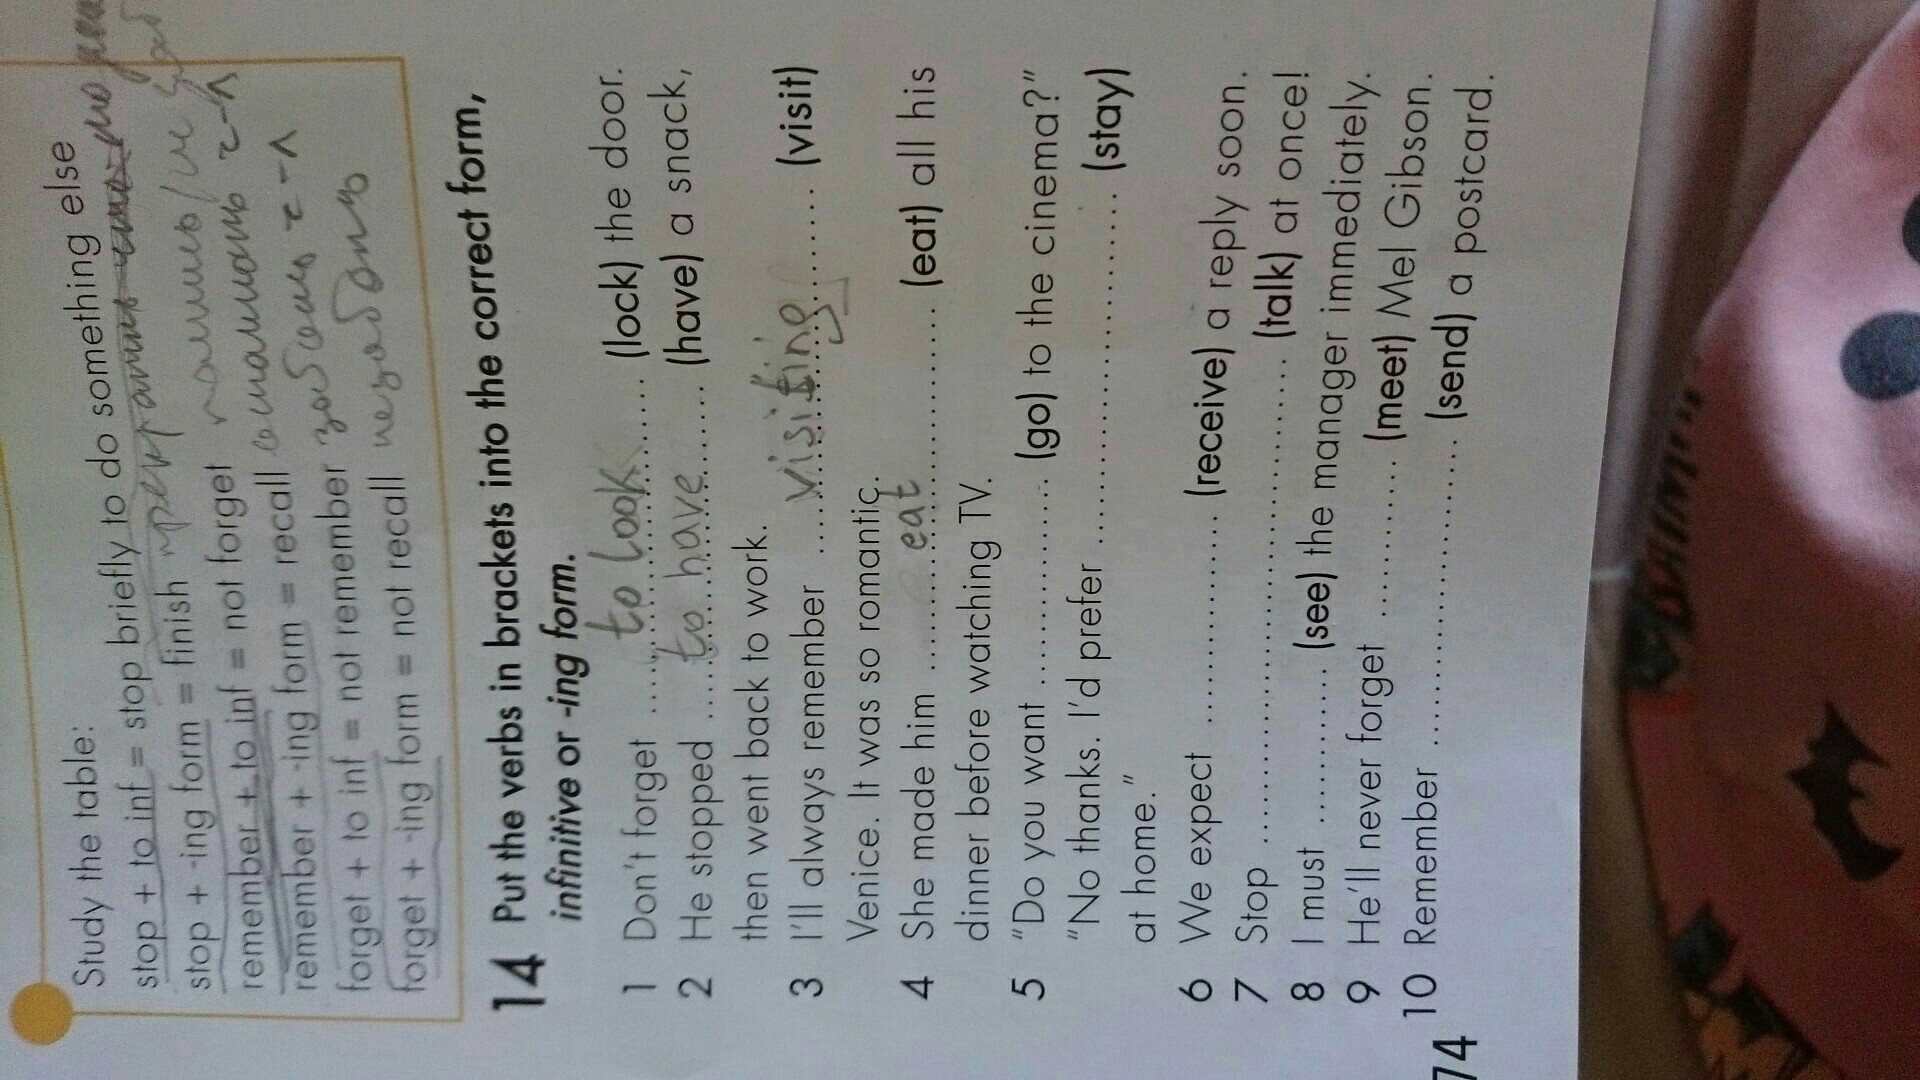 Study the table:
stop + to inf = stop briefly to do something else
stop + -ing form = finish
remember + to inf = not forget
remember + -ing form = recall
forget + to inf = not remember
forget + -ing form = not recall
14 Put the verbs in brackets into the correct form,
infinitive or -ing form.
1 Don't forget ..... to look ..... (lock) the door.
2 He stopped ..... to have ..... (have) a snack,
then went back to work.
3 I'll always remember ..... visiting ..... (visit)
Venice. It was so romantic.
4 She made him ..... eat ..... (eat) all his
dinner before watching TV.
5 "Do you want .................... (go) to the cinema?"
"No thanks. I'd prefer .................... (stay)
at home."
6 We expect .................... (receive) a reply soon.
7 Stop .................... (talk) at once!
8 I must ............ (see) the manager immediately.
9 He'll never forget ............ (meet) Mel Gibson.
10 Remember .................... (send) a postcard.
74